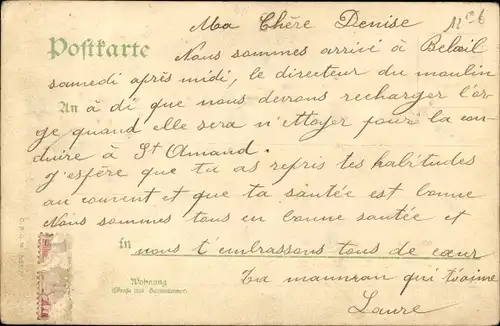 Ma Chère Denise
Postkarte
Nous sommes arrivé à Belœil
samedi après midi, le directeur du moulin
An à di que nous devrons recharger l'or-
ge quand elle sera n'ettoyer pour la con-
duire à St Amand.
J'espère que tu as repris tes habitudes
au couvent et que ta santée est bonne
Nous sommes tous en bonne santée et
in nous t'embrassons tous de cœur
Ta manman qui t'aime
Wohnung
(Straße und Hausnummer)
Laure